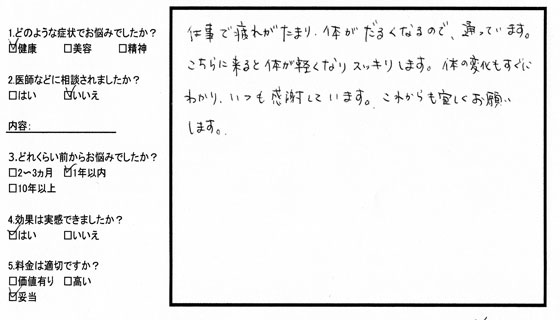 1.どのような症状でお悩みでしたか?
☑健康 □美容 □精神
2.医師などに相談されましたか?
□はい ☑いいえ
内容:
3.どれくらい前からお悩みでしたか?
□2〜3ヵ月 ☑1年以内
□10年以上
4.効果は実感できましたか?
☑はい □いいえ
5.料金は適切ですか?
□価値有り □高い
☑妥当
仕事で疲れがたまり、体がだるくなるので、通っています。
こちらに来ると体が軽くなりスッキリします。体の変化もすぐに
わかり、いつも感謝しています。これからも宜しくお願い
します。